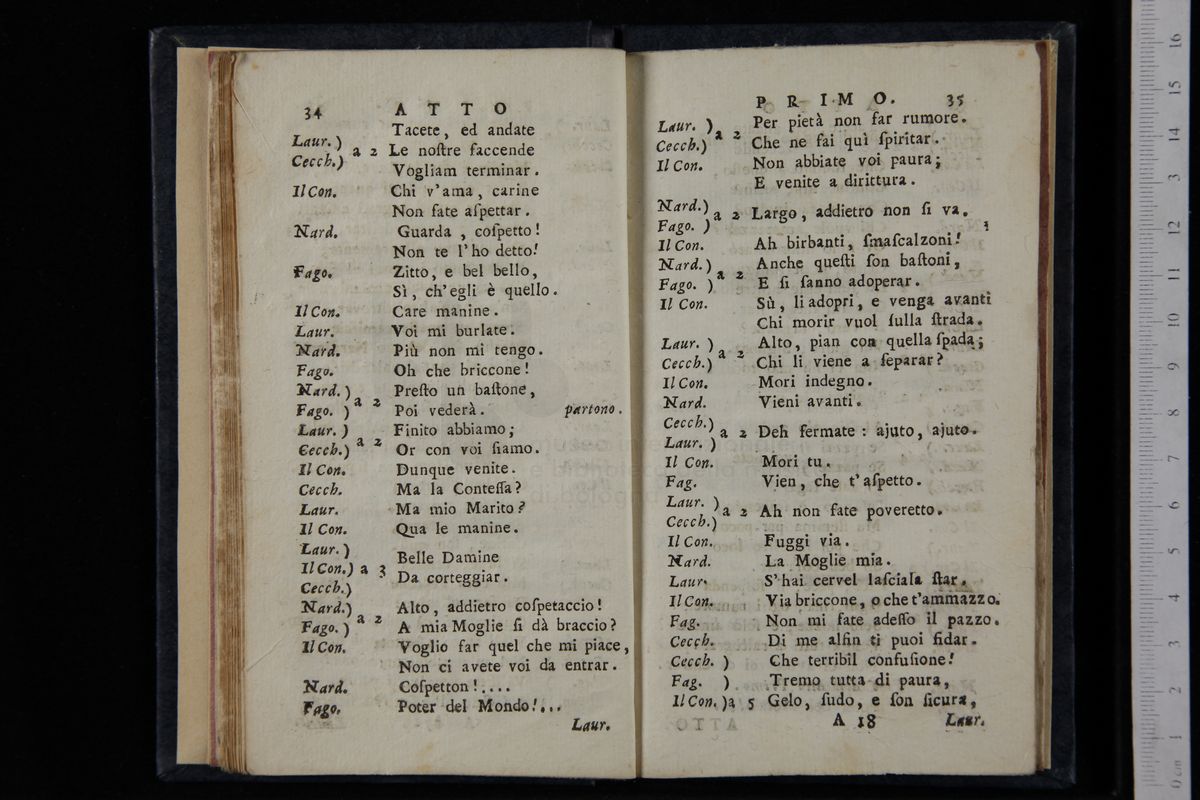 34 ATTO
Tacete, ed andate
Laur. )
a 2 Le noſtre faccende
Cecch.)
Vogliam terminar.
Il Con. Chi v'ama, carine
Non fate aſpettar.
Nard. Guarda, coſpetto!
Non te l'ho detto!
Fago. Zitto, e bel bello,
Sì, ch'egli è quello.
Il Con. Care manine.
Laur. Voi mi burlate.
Nard. Più non mi tengo.
Fago. Oh che briccone!
Nard. ) Preſto un baſtone,
a 2
Fago. ) Poi vederà. partono.
Laur. ) Finito abbiamo;
a 2
Cecch.) Or con voi ſiamo.
Il Con. Dunque venite.
Cecch. Ma la Conteſſa?
Laur. Ma mio Marito?
Il Con. Qua le manine.
Laur. )
Belle Damine
Il Con.) a 3
Da corteggiar.
Cecch.)
Nard.) Alto, addietro coſpetaccio!
a 2
Fago. ) A mia Moglie ſi dà braccio?
Il Con. Voglio far quel che mi piace,
Non ci avete voi da entrar.
Nard. Coſpetton!....
Fago. Poter del Mondo!...
Laur.
PRIMO. 35
Laur. ) Per pietà non far rumore.
a 2
Cecch.) Che ne fai quì ſpiritar.
Il Con. Non abbiate voi paura;
E venite a dirittura.
Nard.)
a 2 Largo, addietro non ſi va.
Fago. )
Il Con. Ah birbanti, ſmaſcalzoni!
Nard. ) Anche queſti ſon baſtoni,
a 2
Fago. ) E ſi ſanno adoperar.
Il Con. Sù, li adopri, e venga avanti
Chi morir vuol ſulla ſtrada.
Laur. ) Alto, pian con quella ſpada;
a 2
Cecch.) Chi li viene a ſeparar?
Il Con. Mori indegno.
Nard. Vieni avanti.
Cecch.)
a 2 Deh fermate: ajuto, ajuto.
Laur. )
Il Con. Mori tu.
Fag. Vien, che t'aſpetto.
Laur. )
a 2 Ah non fate poveretto.
Cecch.)
Il Con. Fuggi via.
Nard. La Moglie mia.
Laur. S'hai cervel laſciala ſtar.
Il Con. Via briccone, o che t'ammazzo.
Fag. Non mi fate adeſſo il pazzo.
Cecch. Di me alfin ti puoi fidar.
Cecch. ) Che terribil confuſione!
Fag. ) Tremo tutta di paura,
Il Con. )a 5 Gelo, ſudo, e ſon ſicura,
A 18 Laur.